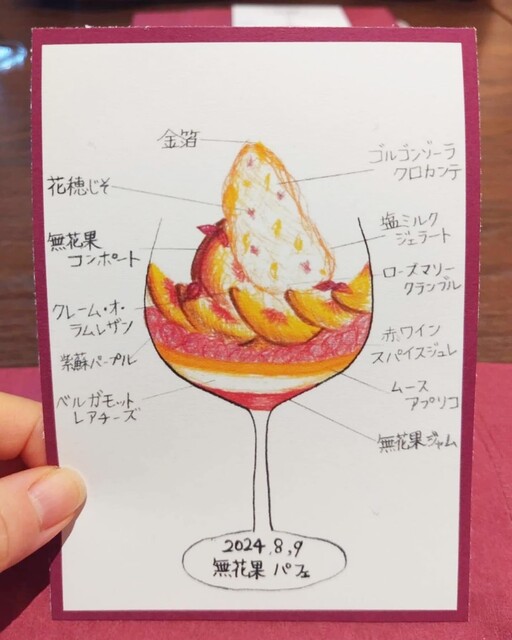 金箔
花穂じそ
無花果
コンポート
クレーム・オ・
ラムレザン
紫蘇パープル
ベルガモット
レアチーズ
ゴルゴンゾーラ
クロカンテ
塩ミルク
ジェラート
ローズマリー
クランブル
赤ワイン
スパイスジュレ
ムース
アプリコ
無花果ジャム
2024,8,9
無花果パフェ